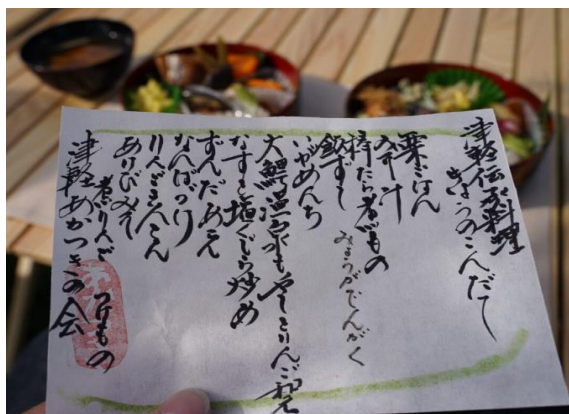 津軽伝承料理
きょうのこんだて
栗ごはん
みそ汁
棒たら煮もの
飯ずし みょうがでんがく
いがめんち
大鰐温泉もやしとりんご和え
なすと塩くじら炒め
ずんだあえ
なんばづけ
りんごきんとん
煮りんご つけもの
津軽あかつきの会